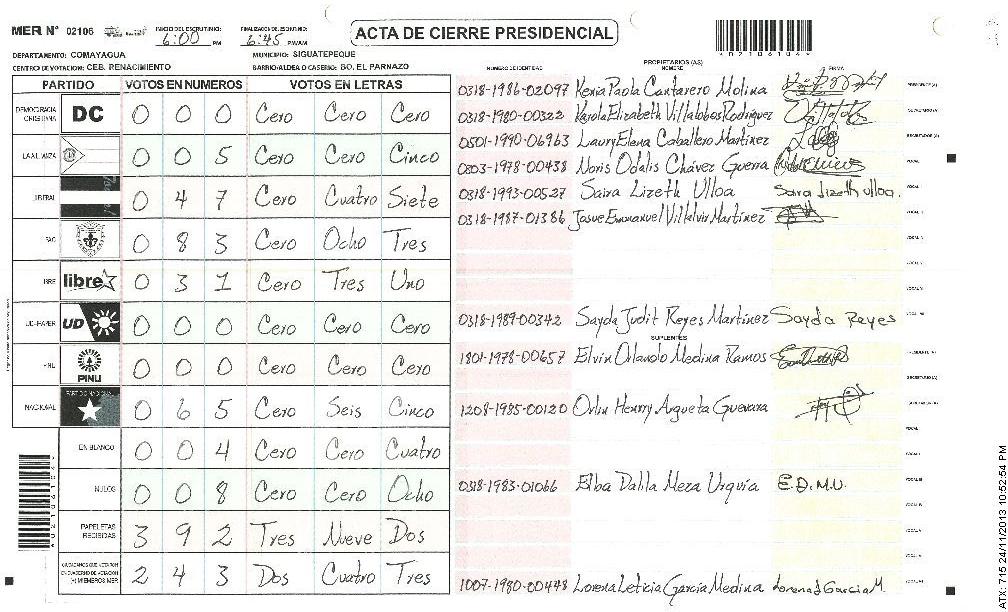 MER Nº 02106 INICIO DEL ESCRUTINIO: 6:00 PM FINALIZACION ESCRUTINIO: 6:45 P.M/A.M
ACTA DE CIERRE PRESIDENCIAL
DEPARTAMENTO: COMAYAGUA MUNICIPIO: SIGUATEPEQUE
CENTRO DE VOTACION: CEB. RENACIMIENTO BARRIO/ALDEA O CASERIO: BO. EL PARNAZO
PARTIDO VOTOS EN NUMEROS VOTOS EN LETRAS
DEMOCRACIA CRISTIANA DC 0 0 0 Cero Cero Cero
LA ALIANZA 0 0 5 Cero Cero Cinco
LIBERAL 0 4 7 Cero Cuatro Siete
PAC 0 8 3 Cero Ocho Tres
LIBRE libre 0 3 1 Cero Tres Uno
UD-FAPER UD 0 0 0 Cero Cero Cero
PINU PINU 0 0 0 Cero Cero Cero
NACIONAL PARTIDO NACIONAL 0 6 5 Cero Seis Cinco
EN BLANCO 0 0 4 Cero Cero Cuatro
NULOS 0 0 8 Cero Cero Ocho
PAPELETAS RECIBIDAS 3 9 2 Tres Nueve Dos
CIUDADANOS QUE VOTARON EN CUADERNO DE VOTACION (+) MIEMBROS MER 2 4 3 Dos Cuatro Tres
PROPIETARIOS (AS)
NUMERO DE IDENTIDAD NOMBRE FIRMA
0318-1986-02097 Kenia Paola Cantarero Molina PRESIDENTE (A)
0318-1980-00322 Karola Elizabeth Villalobos Rodriguez
0501-1990-06963 Laury Elena Caballero Martinez SECRETARIO (A)
0303-1978-00438 Noris Odalis Chávez Guerra VOCAL
0318-1993-00527 Saira Lizeth Ulloa Saira Lizeth Ulloa. VOCAL
0318-1987-01386 Josue Emmanuel Villalvir Martinez
0318-1989-00342 Sayda Judit Reyes Martinez Sayda Reyes
SUPLENTES
1801-1978-00657 Elvin Orlando Medina Ramos PRESIDENTE (A)
SECRETARIO (A)
1208-1985-00120 Orlin Henrry Argueta Guevara
0318-1983-01066 Elba Dalila Meza Urquía E.D.M.U.
1007-1980-00448 Lorena Leticia Garcia Medina Lorena L Garcia M.
ATX-715 24/11/2013 10:52:54 PM